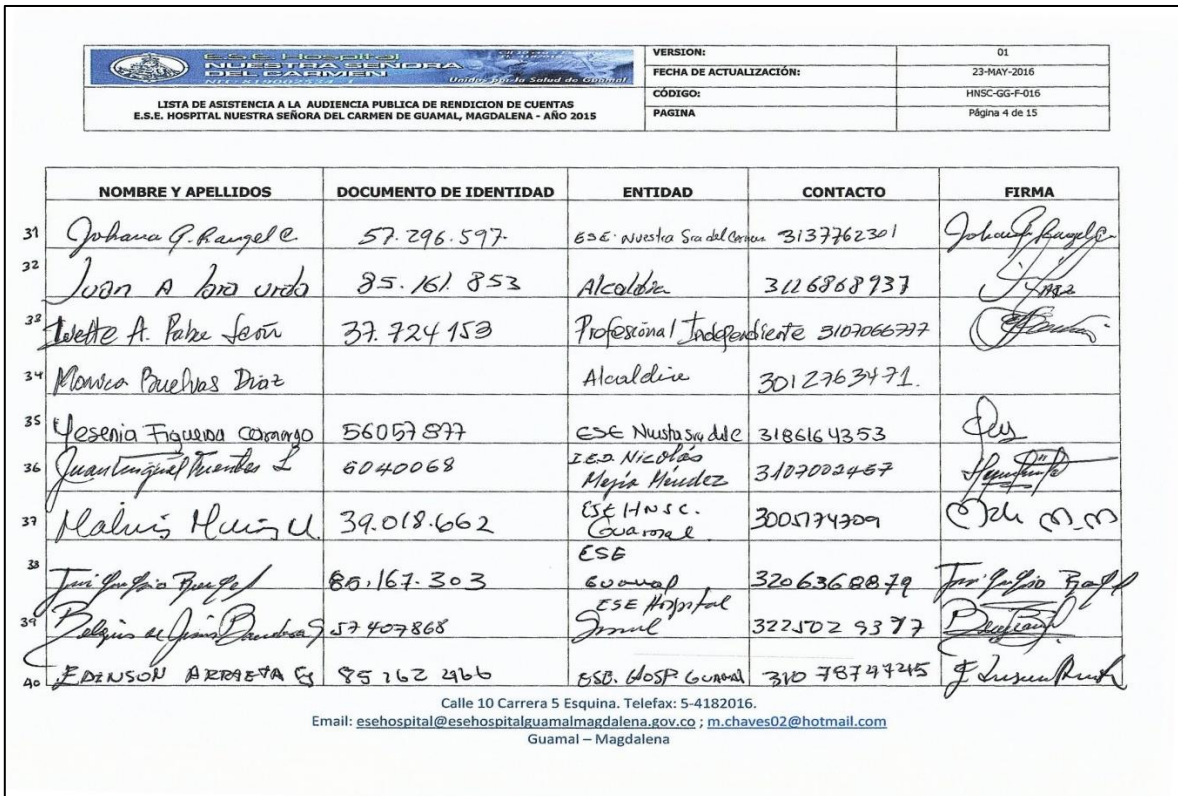 E.S.E. Hospital
NUESTRA SEÑORA
DEL CARMEN
Unidos por la Salud de Guamal
LISTA DE ASISTENCIA A LA AUDIENCIA PUBLICA DE RENDICION DE CUENTAS
E.S.E. HOSPITAL NUESTRA SEÑORA DEL CARMEN DE GUAMAL, MAGDALENA - AÑO 2015
VERSION: 01
FECHA DE ACTUALIZACIÓN: 23-MAY-2016
CÓDIGO: HNSC-GG-F-016
PAGINA Página 4 de 15
NOMBRE Y APELLIDOS DOCUMENTO DE IDENTIDAD ENTIDAD CONTACTO FIRMA
31 Johana G. Rangel C 57.296.597. ESE. Nuestra Sra del Carmen 3137762301
32 Juan A 85.161.853 Alcaldia 3126868937
33 Ivette A. León 37.724153 Profesional Independiente 3107066777
34 Monica Buelvas Diaz Alcaldia 3012763471.
35 Yesenia Figueroa Camargo 56057877 ESE 3186164353
36 Juan Fuentes L 5040068 I.E.D. Nicolás
Mejia Méndez 3107002457
37 39.018.662 ESE HNSC.
Guamal 3005174709
38 Rangel 85.167.303 ESE
Guamal 3206368879
39 de Jesus 57407868 ESE Hospital
3225029377
40 EDINSON ARRIETA 85162466 ESE. HOSP. GUAMAL 310 78747245
Calle 10 Carrera 5 Esquina. Telefax: 5-4182016.
Email: esehospital@esehospitalguamalmagdalena.gov.co ; m.chaves02@hotmail.com
Guamal – Magdalena